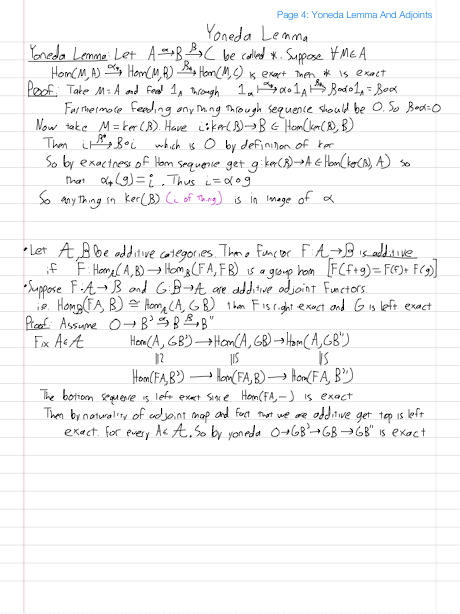 Page 4: Yoneda Lemma And Adjoints
Yoneda Lemma
Yoneda Lemma: Let A →^α B →^β C be called *. Suppose ∀M∈A
Hom(M,A) →^α* Hom(M,B) →^β* Hom(M,C) is exact then * is exact
Proof: Take M=A and feed 1_A through 1_A ↦^α* α∘1_A ↦^β* β∘α∘1_A = β∘α
Furthermore feeding anything through sequence should be 0. So β∘α=0
Now take M=ker(β). Have i: ker(β)→B ∈ Hom(ker(β),B)
Then i ↦^β* β∘i which is 0 by definition of ker
So by exactness of Hom sequence get g: ker(β)→A ∈ Hom(ker(β),A) so
that α*(g)=i. Thus i=α∘g
So anything in ker(β) (i of thing) is in image of α
• Let A, B be additive categories. Then a functor F: A→B is additive
if F: Hom_A(A,B) → Hom_B(FA,FB) is a group hom [F(f+g)=F(f)+F(g)]
• Suppose F: A→B and G: B→A are additive adjoint functors.
i.e. Hom_B(FA,B) ≅ Hom_A(A,GB) then F is right exact and G is left exact
Proof: Assume 0→B' → B → B"
Fix A∈A Hom(A,GB') → Hom(A,GB) → Hom(A,GB")
Hom(FA,B') → Hom(FA,B) → Hom(FA,B")
The bottom sequence is left exact since Hom(FA,−) is exact
Then by naturality of adjoint map and fact that we are additive get top is left
exact. for every A∈A. So by yoneda 0→GB'→GB→GB" is exact